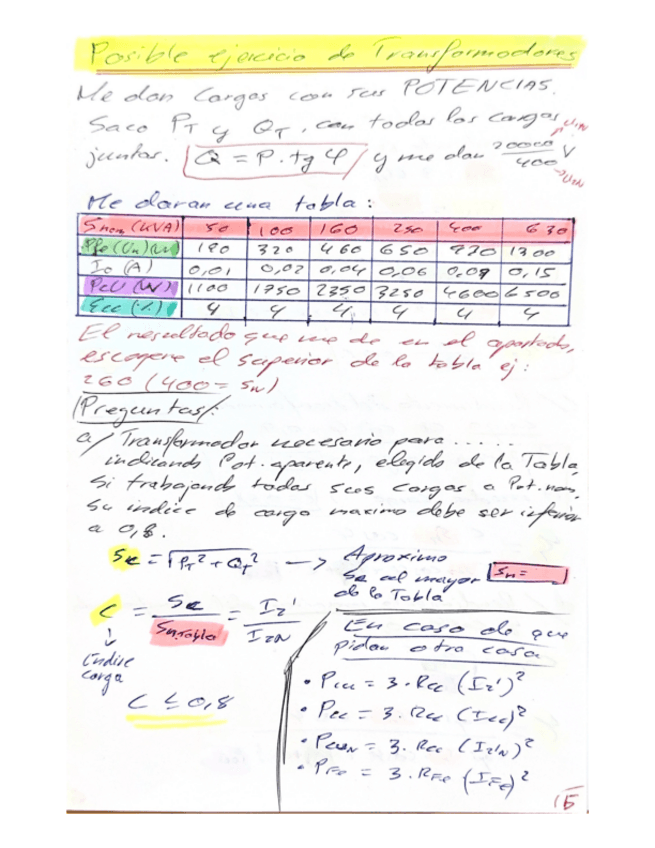 Posible ejercicio de Transformadores
Me dan Cargas con sus POTENCIAS.
Saco PT y QT, con todas las cargas
juntas. Q = P. tg φ y me dan 20000/400 V
U1N
U2N
Me daran una tabla:
Snom (KVA) 50 100 160 250 400 630
Pfe (Un)(W) 190 320 460 650 930 1300
Io (A) 0,01 0,02 0,04 0,06 0,09 0,15
PcU (W) 1100 1750 2350 3250 4600 6500
Ecc (%) 4 4 4 4 4 4
El resultado que me de en el apartado,
escogere el superior de la tabla ej:
260 (400 = SN)
Preguntas:
a/ Transformador necesario para .....
indicando Pot. aparente, elegido de la Tabla,
si trabajando todas sus cargas a Pot. nom,
su indice de carga maximo debe ser inferior
a 0,8.
Sc = √PT² + QT² → Aproximo
Sc al mayor
de la Tabla
Sn =
C = Sc/Sn.Tabla = I2'/I2N
↓
Indice
carga
C ≤ 0,8
En caso de que
pidan otra cosa
• Pcu = 3. Rcc (I2')²
• Pcc = 3. Rcc (I1cc)²
• PcuN = 3. Rcc (I2'N)²
• PFe = 3. RFe (IFe)²
15